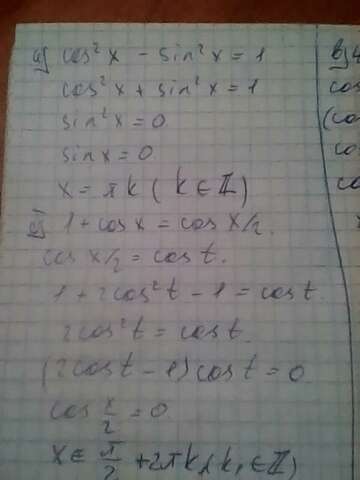 а) cos²x - sin²x = 1
cos²x + sin²x = 1
sin²x = 0
sinx = 0
x = πk (k ∈ ℤ)
1 + cosx = cos x/2.
cos x/2 = cos t.
1 + 2cos²t - 1 = cos t.
2cos²t = cos t.
(2cos t - 1) cos t = 0
cos x/2 = 0
x ∈ π/2 + 2πk, (k, ∈ ℤ)
в)
cos
(co
co
co